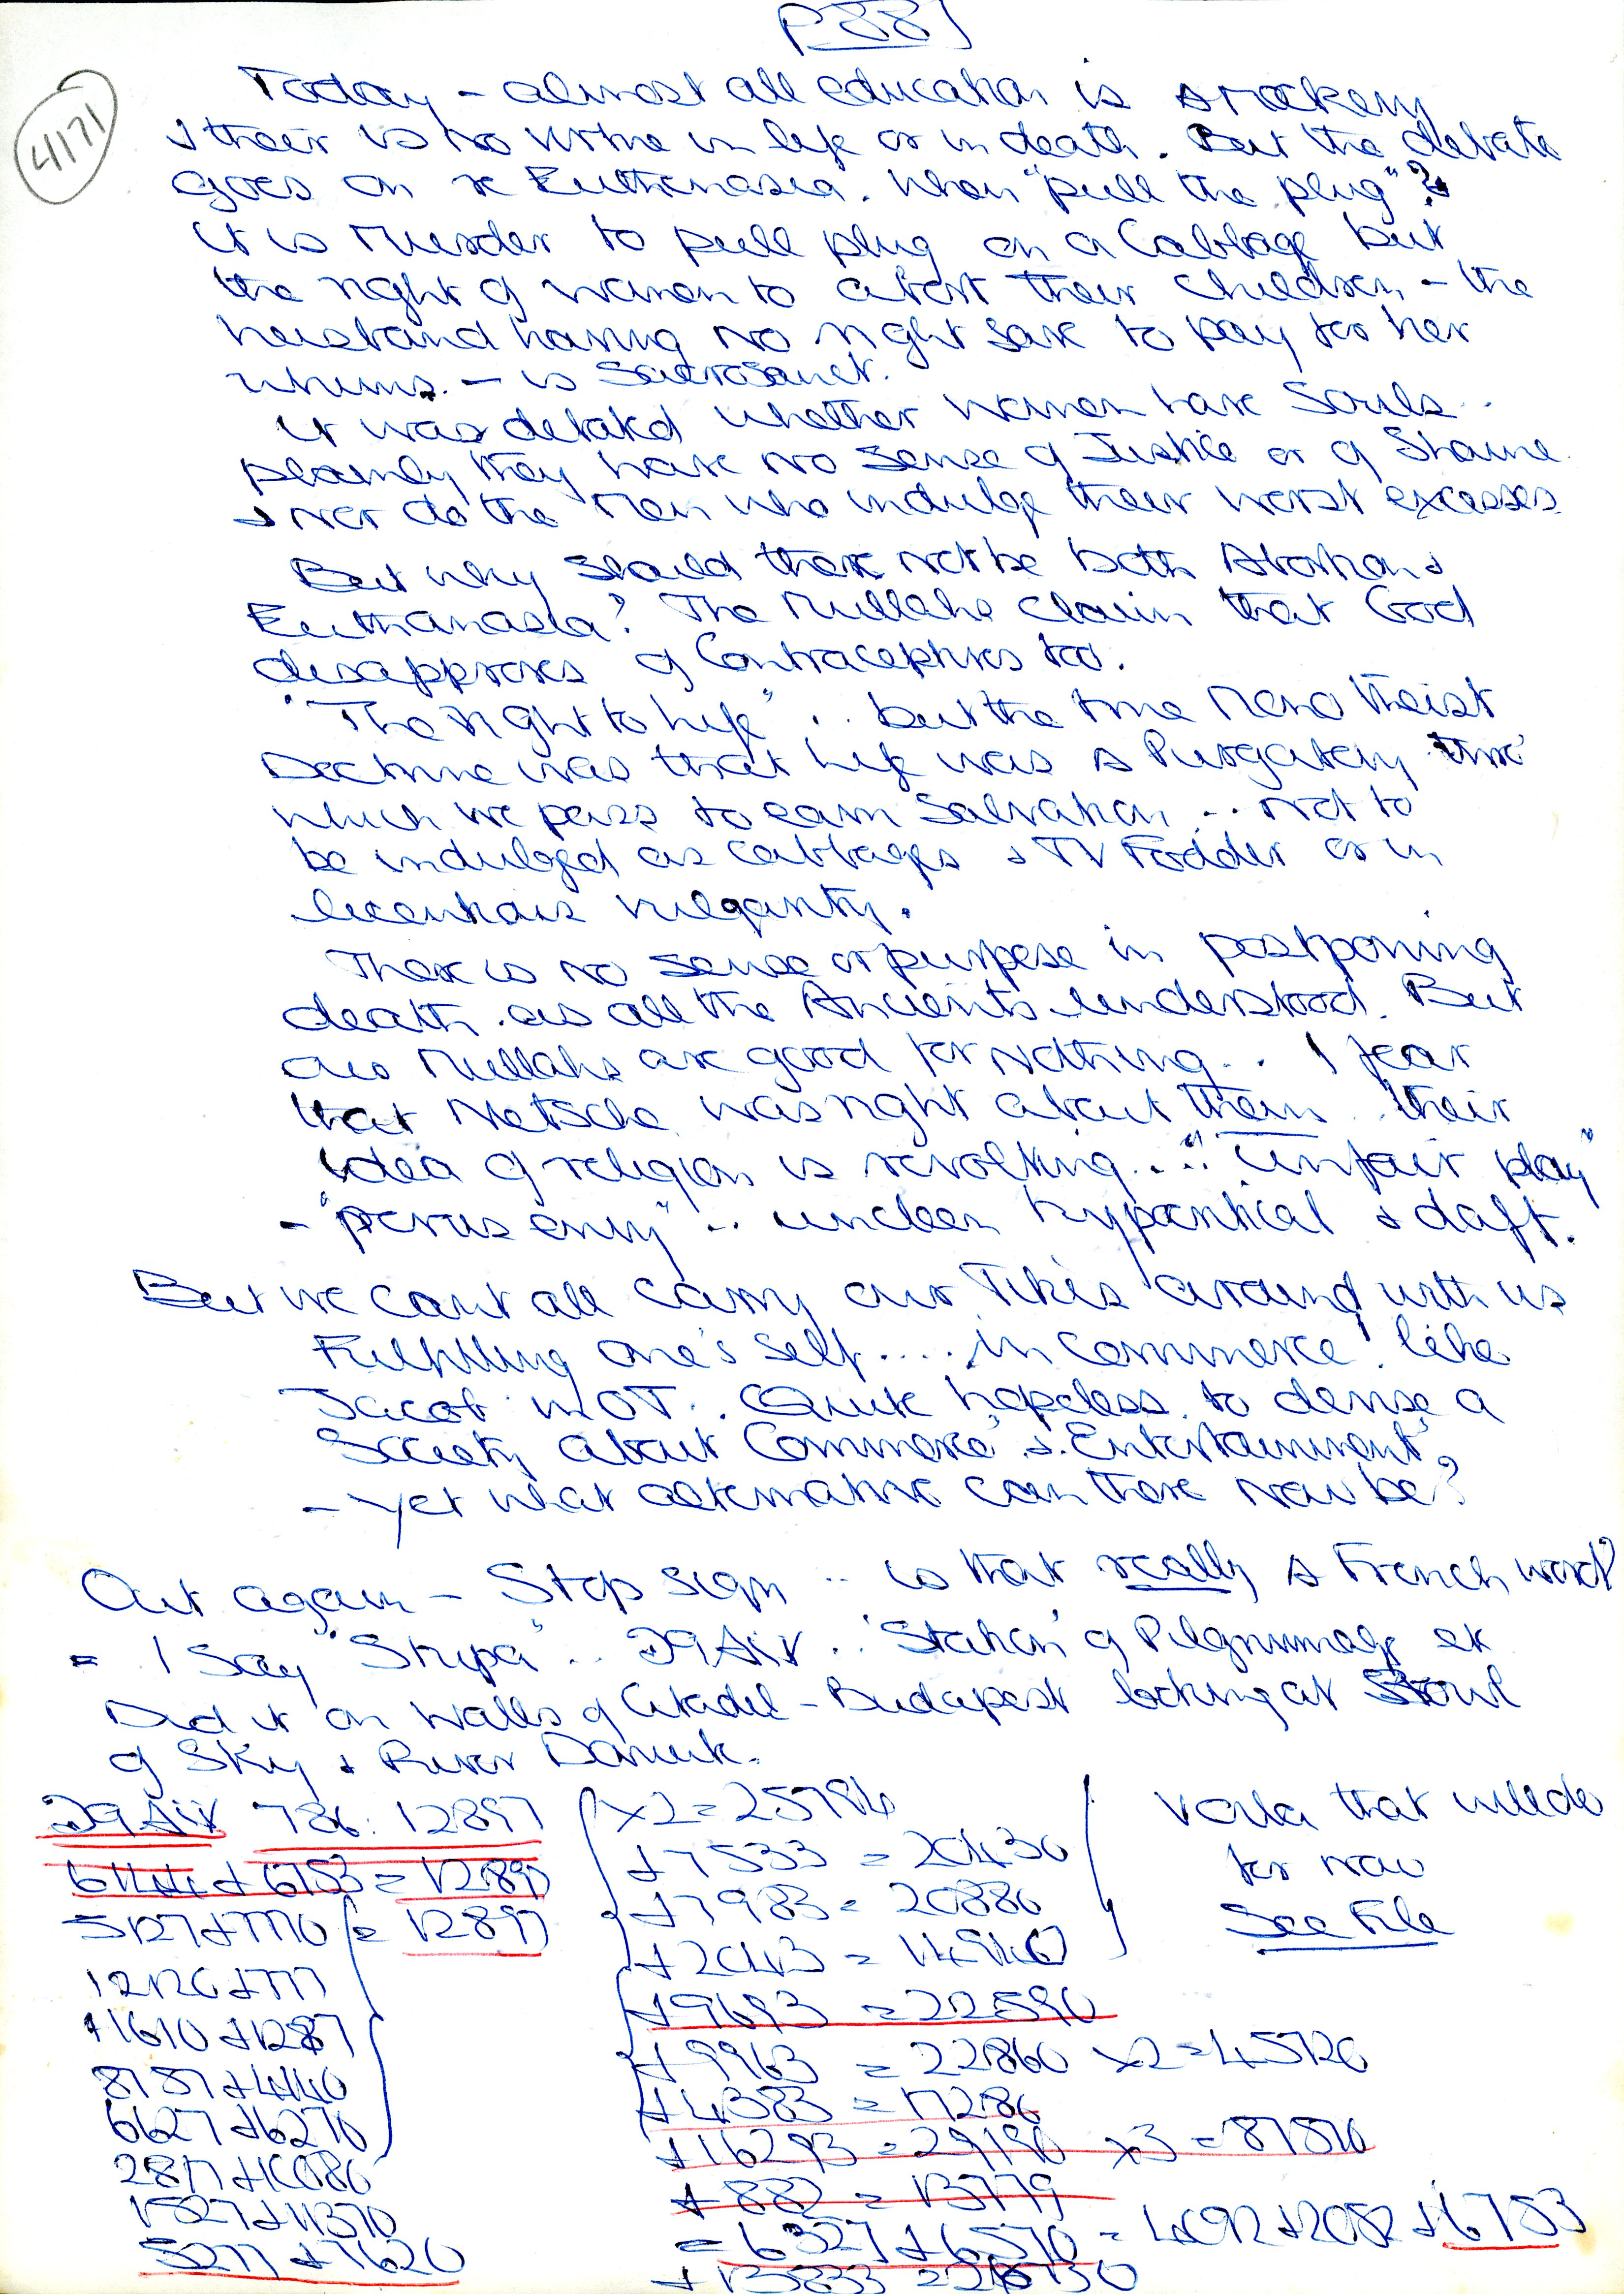 P 881
4171
Today - almost all education is a mockery
& their is no virtue in life or in death. But the debate
goes on re Euthenasia. When "pull the plug"?
it is Murder to pull plug on a Cabbage but
the right of women to abort their children - the
husband having no right save to pay for her
whims. - is Sacrosanct.
it was debated whether women have Souls..
plainly they have no sense of Justice or of Shame
& nor do the men who indulge their worst excesses.
But why should there not be both Abortion &
Euthanasia? The Mullahs claim that God
disapproves of Contraceptives too.
"The right to life" .. but the true Mono theist
Doctrine was that life was a Purgatory thro'
which we pass to earn Salvation .. not to
be indulged as cabbages & TV Fodder or in
licentious vulgarity.
There is no sense or purpose in postponing
death. as all the Ancients understood. But
our Mullahs are good for nothing.. I fear
that Netsche was right about them their
idea of religion is revolting... "unfair play"
- "penis envy" .. unclean hypocritical & daft.
But we cant all carry our Tikis around with us
Fulfilling one's self .... in Commerce! like
Jacob in OT.. Quite hopeless to dense a
Society about 'Commerce' & 'Entertainment'
- yet what alternative can there now be?
Out again - Stop sign .. is that really a French word?
= I say "Stupa" .. 29 Air .. 'Station' of Pilgrimage etc
Did it on Walls of Citadel - Budapest looking at
of Sky & River Danube.
29 Air 786: 12897
6144 + 6753 = 12897
5127 + 7770 = 12897
12120 + 777
11610 + 1287
8757 + 4140
6627 + 6270
2817 + 10080
1527 + 11370
5277 + 7620
x2 = 25794
+ 7533 = 20430
+ 7983 = 20880
+ 2043 = 14940
+ 9693 = 22590
+ 9963 = 22860 x2 = 45720
+ 4383 = 17280
+ 16293 = 29190 x3 = 87570
+ 882 = 13779
= 6327 + 6570 = 4092 + 2052 + 6753
+ 13833 = 26730
Voila that will do
for now
See File